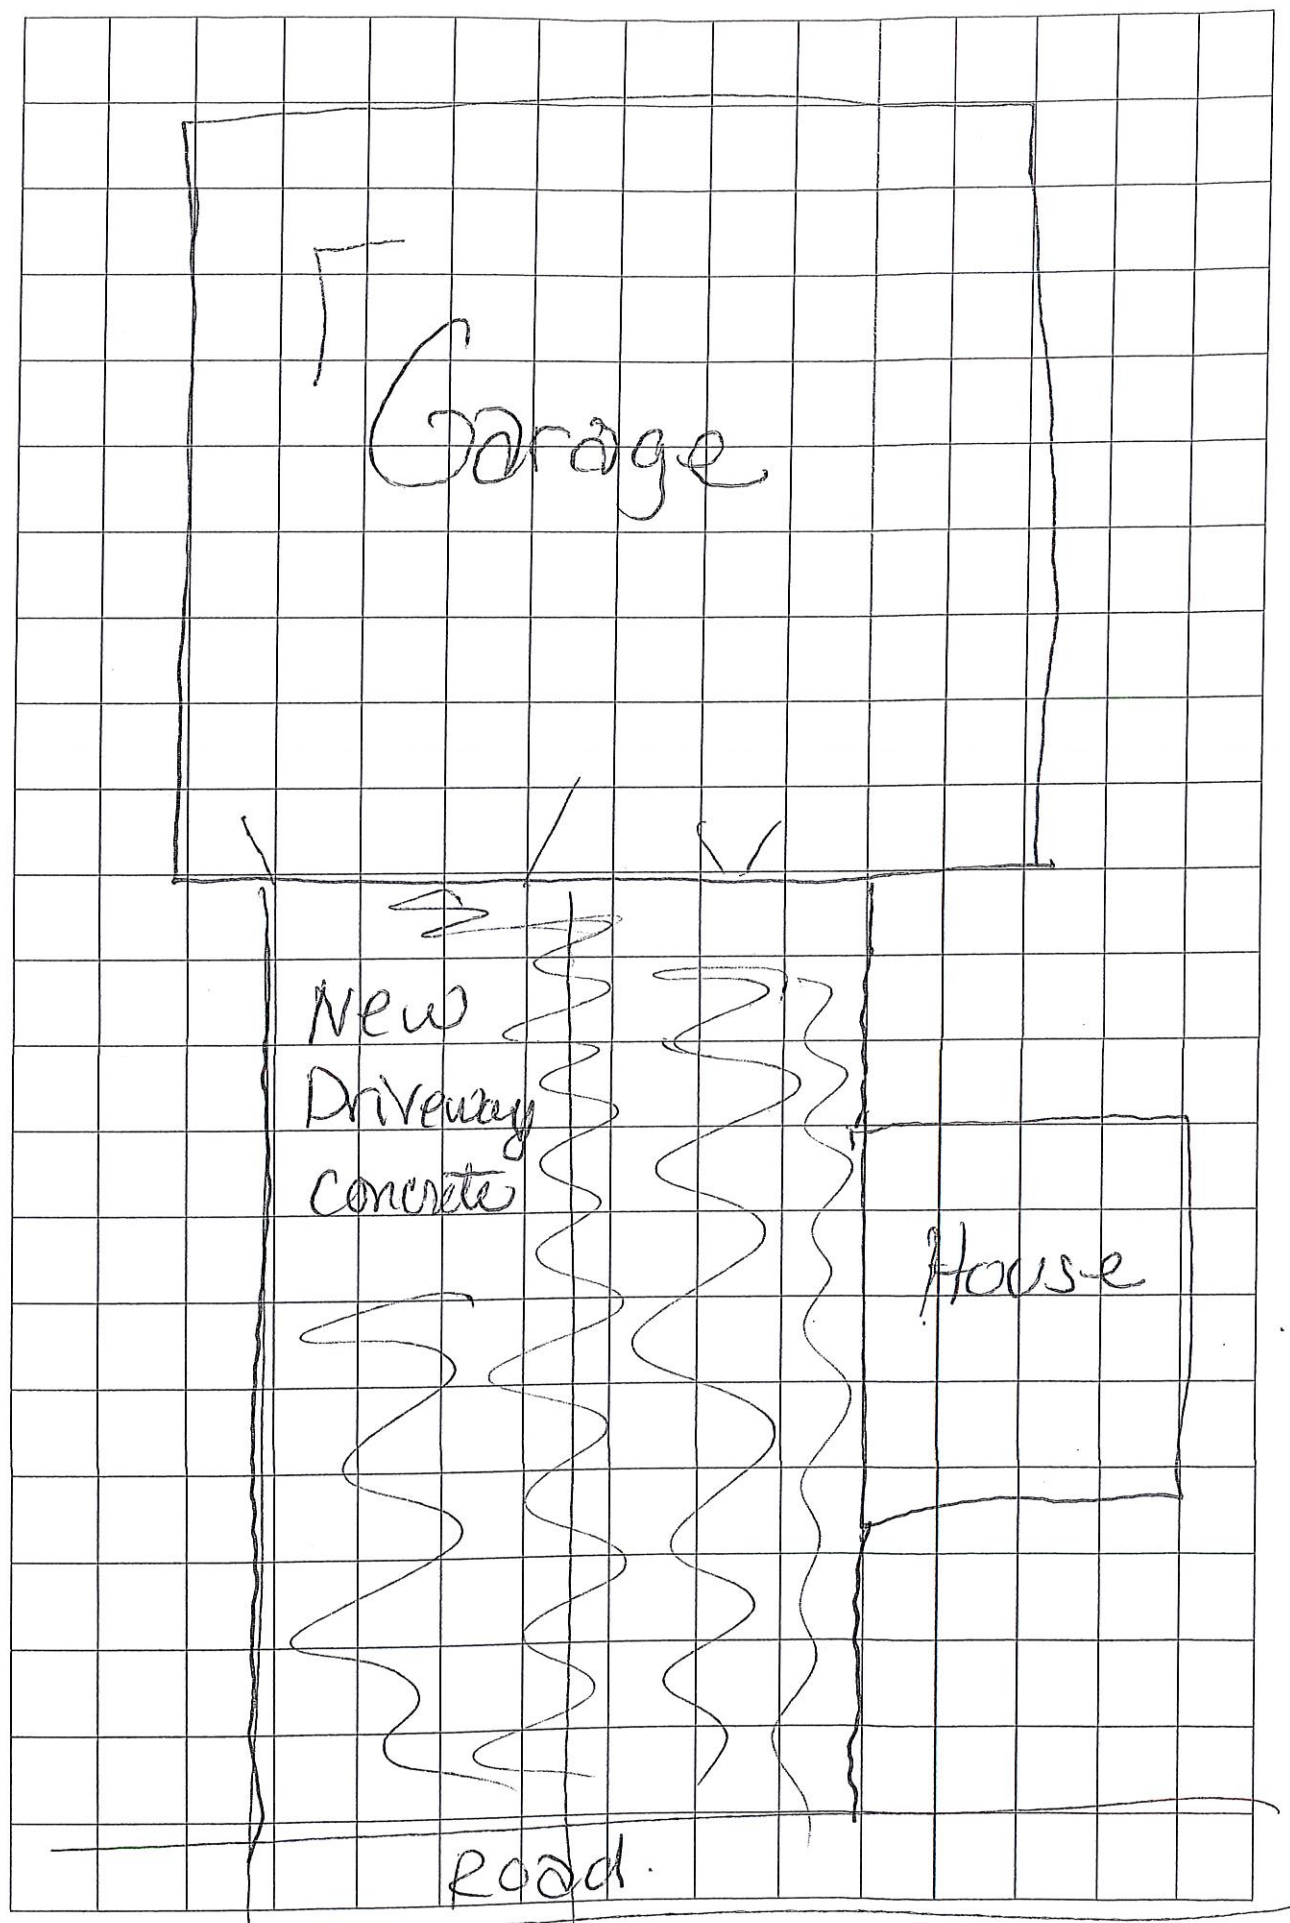 Garage
New
Driveway
Concrete
House
Road.